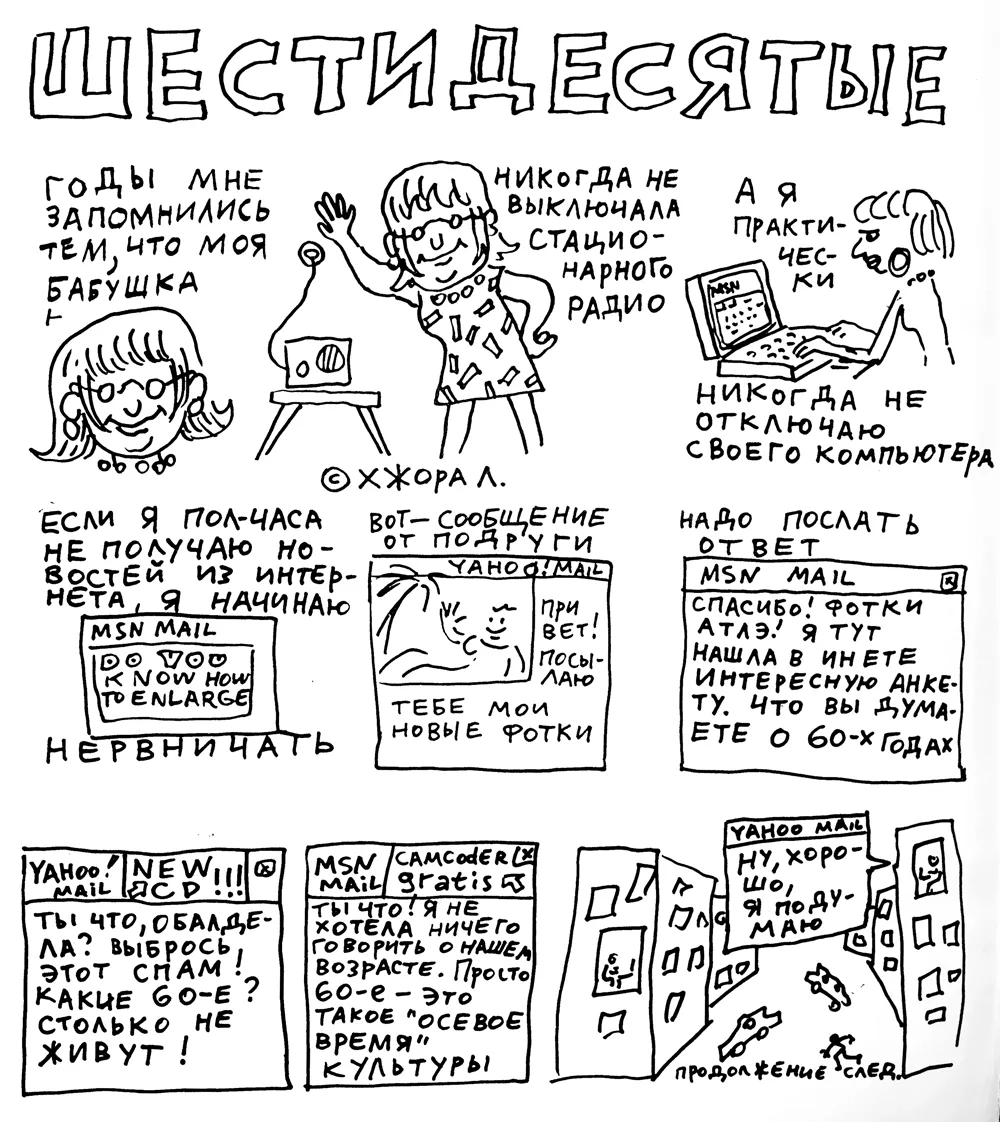 ШЕСТИДЕСЯТЫЕ
ГОДЫ МНЕ
ЗАПОМНИЛИСЬ
ТЕМ, ЧТО МОЯ
БАБУШКА
НИКОГДА НЕ
ВЫКЛЮЧАЛА
СТАЦИО-
НАРНОГО
РАДИО
А Я
ПРАКТИ-
ЧЕС-
КИ
MSN
НИКОГДА НЕ
ОТКЛЮЧАЮ
СВОЕГО КОМПЬЮТЕРА
© ХЖОРА Л.
ЕСЛИ Я ПОЛ-ЧАСА
НЕ ПОЛУЧАЮ НО-
ВОСТЕЙ ИЗ ИНТЕР-
НЕТА, Я НАЧИНАЮ
MSN MAIL
DO YOU
KNOW HOW
TO ENLARGE
НЕРВНИЧАТЬ
ВОТ — СООБЩЕНИЕ
ОТ ПОДРУГИ
YAHOO! MAIL
ПРИ
ВЕТ!
ПОСЫ-
ЛАЮ
ТЕБЕ МОИ
НОВЫЕ ФОТКИ
НАДО ПОСЛАТЬ
ОТВЕТ
MSN MAIL
СПАСИБО! ФОТКИ
АТЛЭ! Я ТУТ
НАШЛА В ИНЕТЕ
ИНТЕРЕСНУЮ АНКЕ-
ТУ. ЧТО ВЫ ДУМА-
ЕТЕ О 60-Х ГОДАХ
YAHOO!
MAIL
NEW
CD!!!
ТЫ ЧТО, ОБАЛДЕ-
ЛА? ВЫБРОСЬ
ЭТОТ СПАМ!
КАКИЕ 60-Е?
СТОЛЬКО НЕ
ЖИВУТ!
MSN
MAIL
CAMCODER
gratis
ТЫ ЧТО! Я НЕ
ХОТЕЛА НИЧЕГО
ГОВОРИТЬ О НАШЕМ
ВОЗРАСТЕ. Просто
60-е — ЭТО
ТАКОЕ "ОСЕВОЕ
ВРЕМЯ"
КУЛЬТУРЫ
YAHOO MAIL
НУ, ХОРО-
ШО,
Я ПОДУ-
МАЮ
ПРОДОЛЖЕНИЕ СЛЕД.